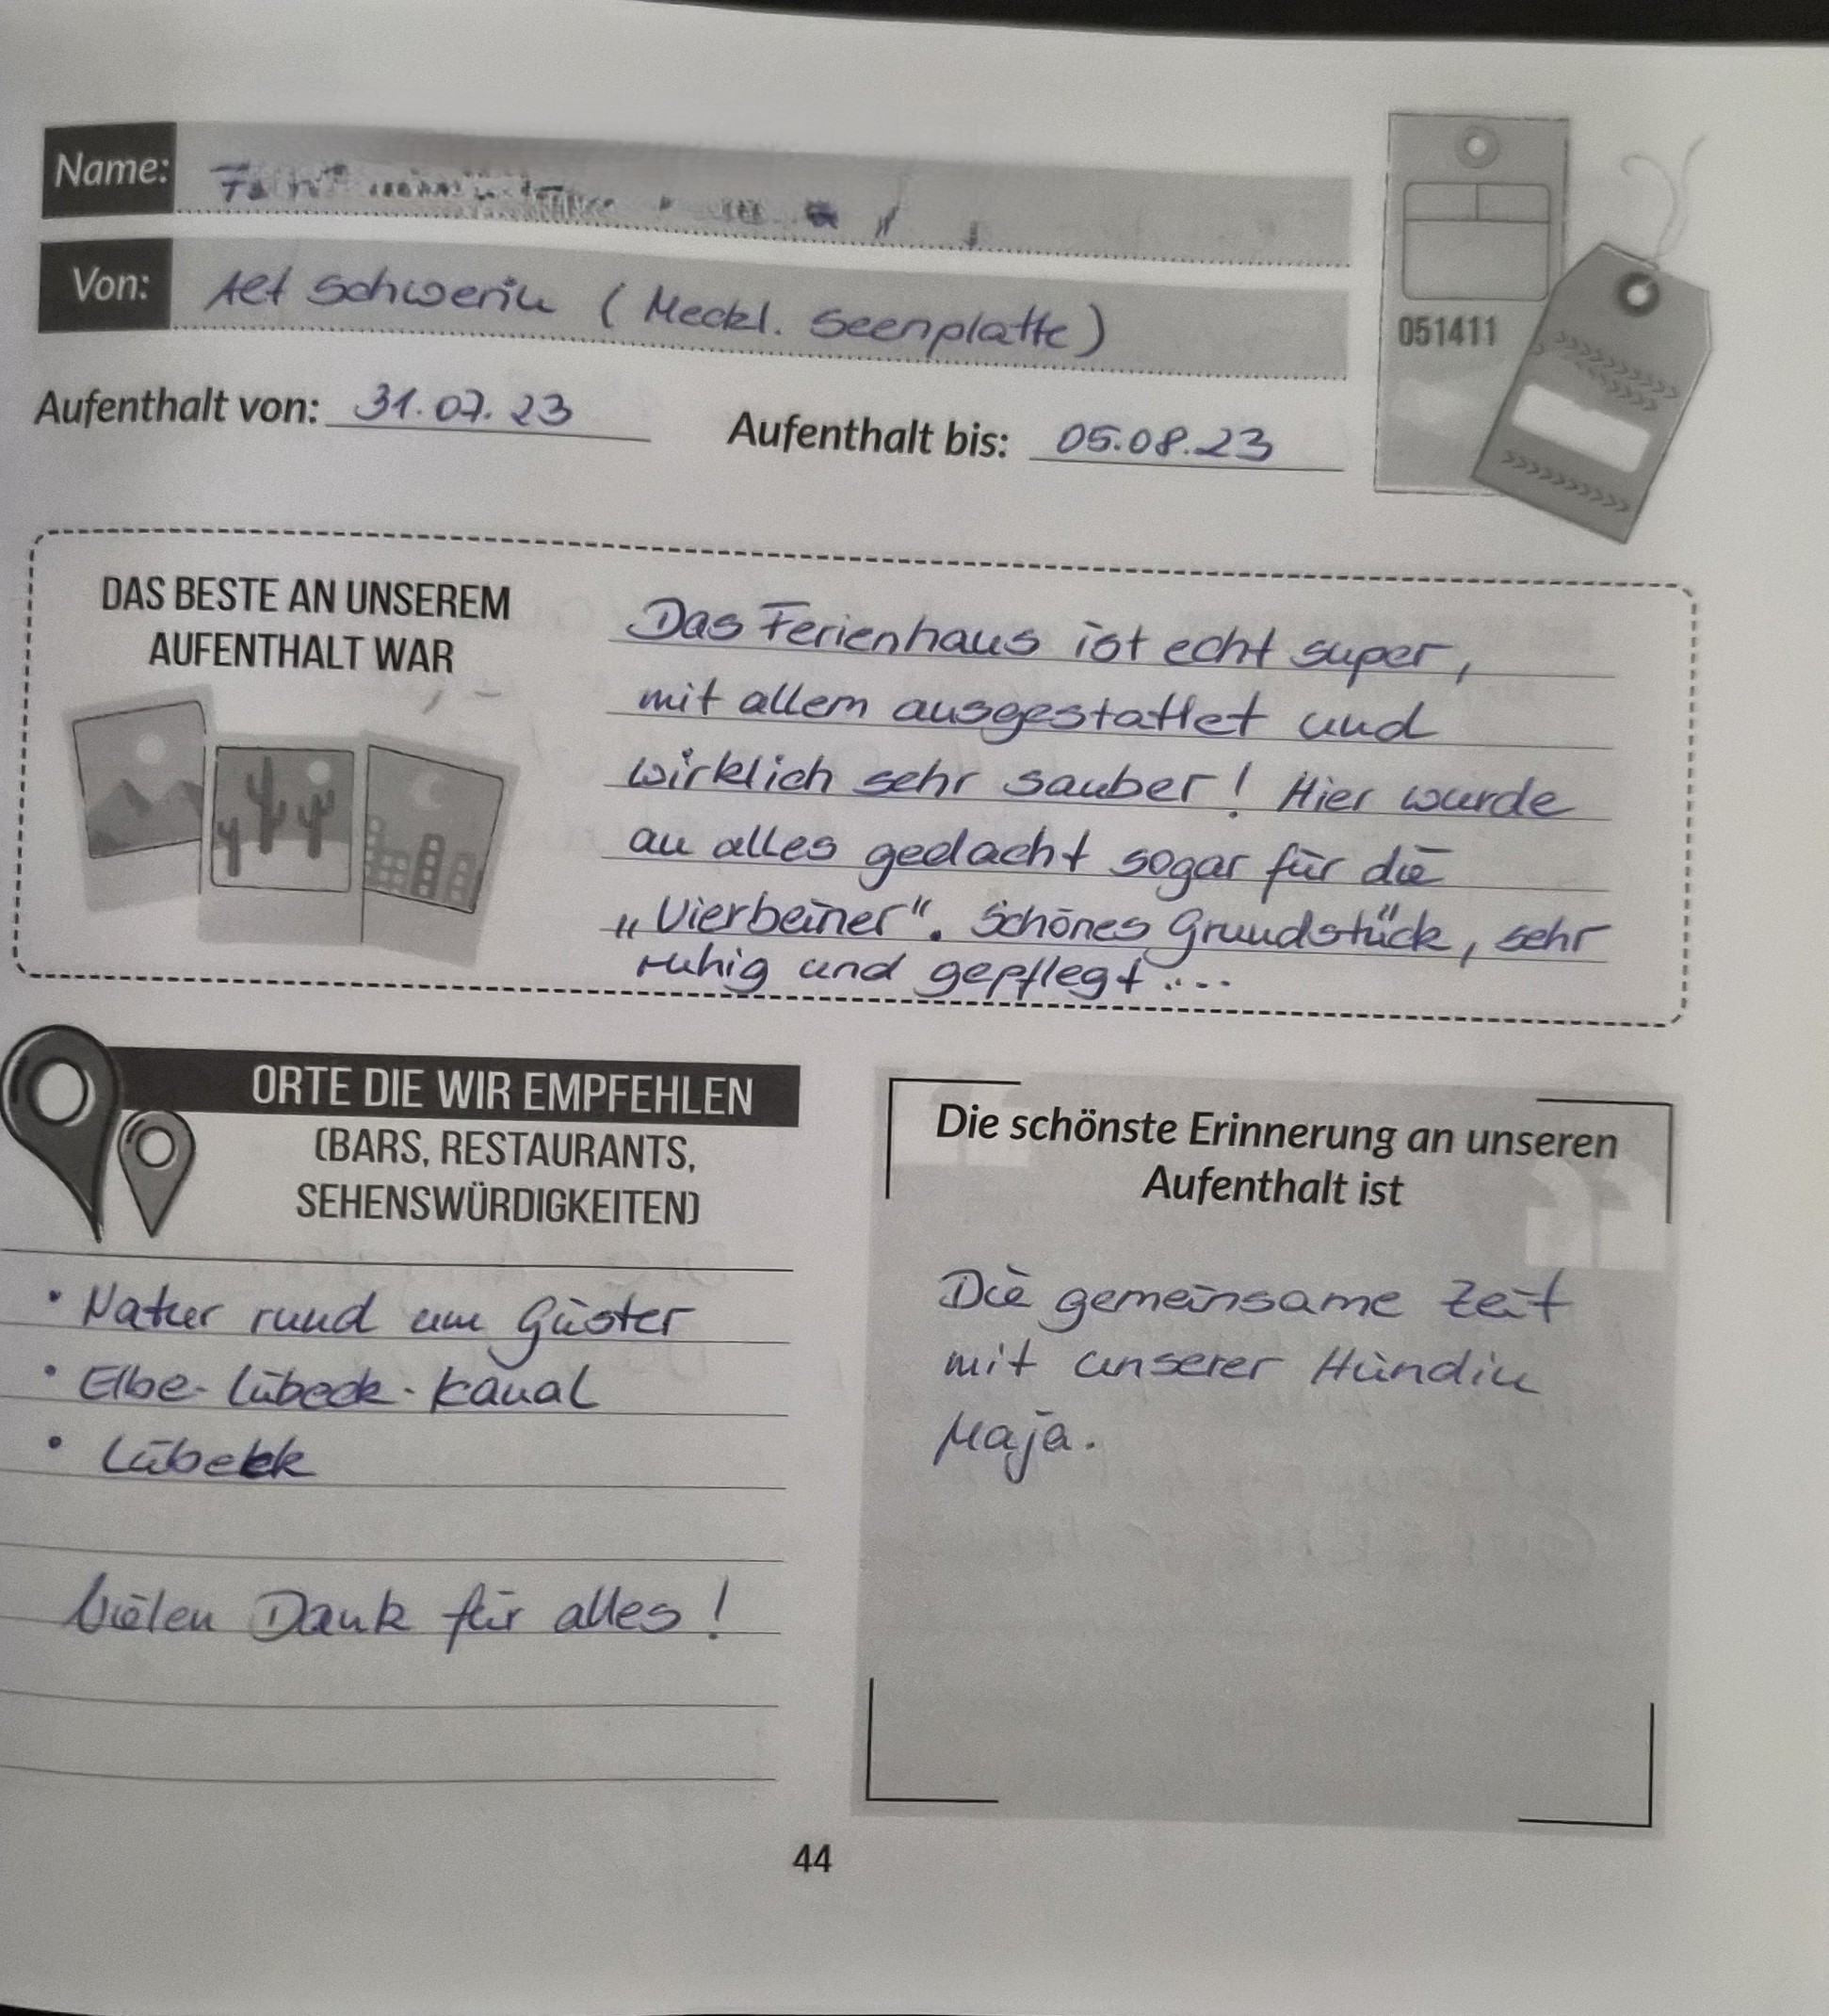 Name:
Von: Alt Schwerin (Meckl. Seenplatte)
Aufenthalt von: 31.07.23 Aufenthalt bis: 05.08.23
051411
DAS BESTE AN UNSEREM
AUFENTHALT WAR
Das Ferienhaus ist echt super,
mit allem ausgestattet und
wirklich sehr sauber! Hier wurde
an alles gedacht sogar für die
„Vierbeiner“. Schönes Grundstück, sehr
ruhig und gepflegt....
ORTE DIE WIR EMPFEHLEN
(BARS, RESTAURANTS,
SEHENSWÜRDIGKEITEN)
• Natur rund um Güster
• Elbe-Lübeck-Kanal
• Lübeck
Vielen Dank für alles!
Die schönste Erinnerung an unseren
Aufenthalt ist
Die gemeinsame Zeit
mit unserer Hündin
Maja.
44